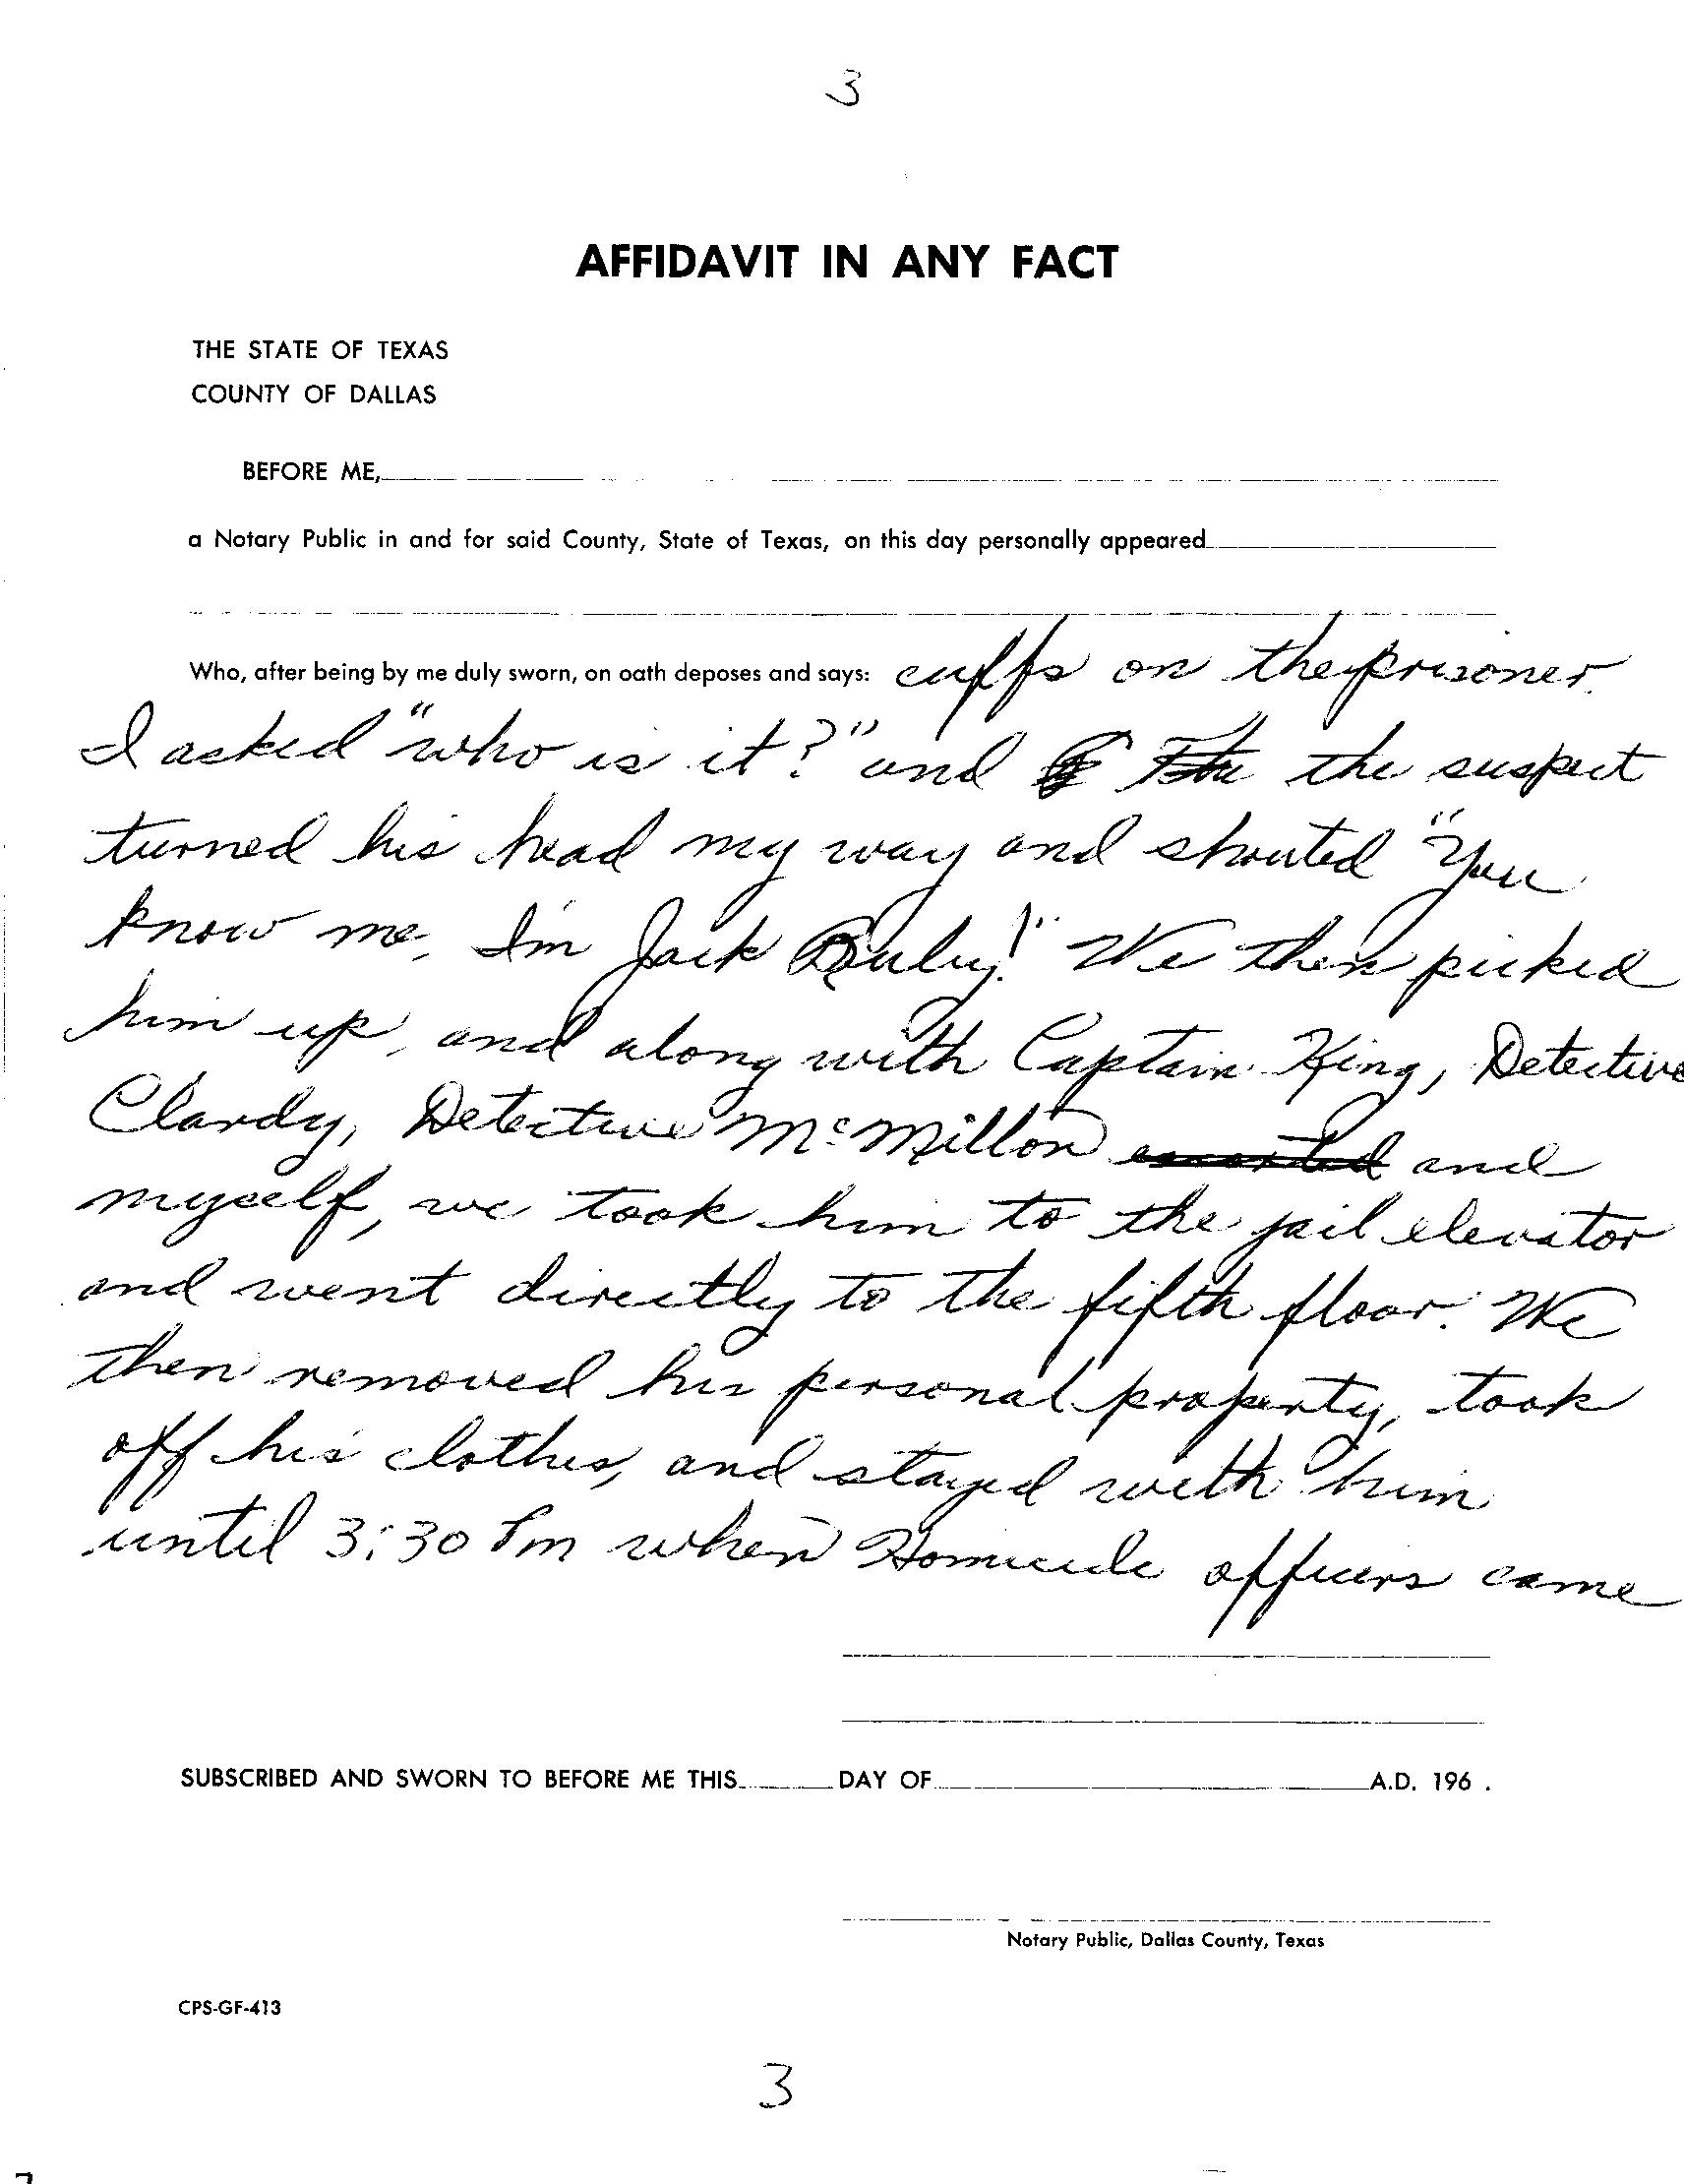 3
AFFIDAVIT IN ANY FACT
THE STATE OF TEXAS
COUNTY OF DALLAS
BEFORE ME,
a Notary Public in and for said County, State of Texas, on this day personally appeared
Who, after being by me duly sworn, on oath deposes and says: cuffs on the prisoner.
I asked "who is it?" and the suspect
turned his head my way and shouted "You
know me, I'm Jack Ruby!" We then picked
him up, and along with Captain King, Detective
Clardy, Detective McMillon escorted and
myself, we took him to the jail elevator
and went directly to the fifth floor. We
then removed his personal property, took
off his clothes, and stayed with him
until 3:30 Pm when Homicide officers came
SUBSCRIBED AND SWORN TO BEFORE ME THIS DAY OF A.D. 196 .
Notary Public, Dallas County, Texas
CPS-GF-413
3